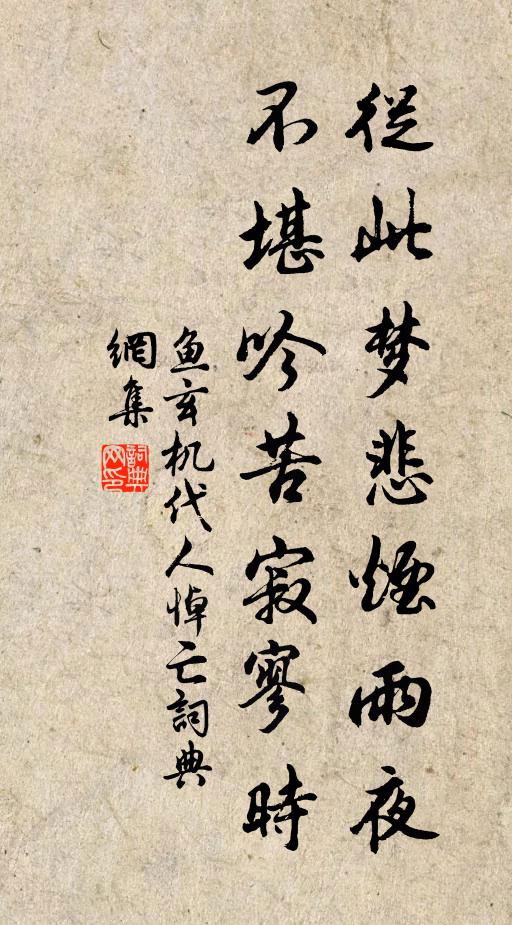 從此梦悲煙雨夜
不堪吟苦寂寥時
鱼玄机代人悼亡詞典
網集
詞典网印